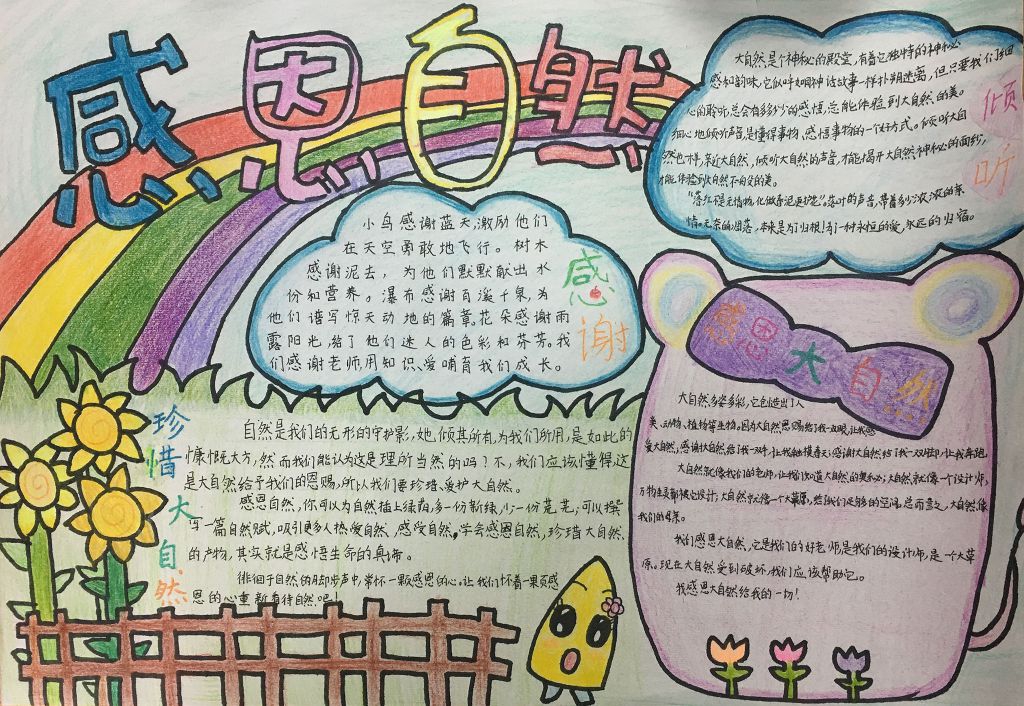 感恩自然
大自然,是个神秘的殿堂,有着它独特的神秘
感和韵味,它似乎如同神话故事一样扑朔迷离,但只要我们细
心的聆听,总会有多多少少的感悟,总能体验到大自然的美。
细心地倾听声音,是懂得事物,感悟事物的一个好方式。倾听大自
然也一样,亲近大自然,倾听大自然的声音,才能揭开大自然神秘的面纱,
才能体验到大自然不同的美。
"落红不是无情物,化做春泥更护花",落叶的声音,带着多少浓浓的亲
情,无奈的凋落,本来是为了归根!为了一树永恒的爱,永远的归宿。
倾听
小鸟感谢蓝天,激励他们
在天空勇敢地飞行。树木
感谢泥去,为他们默默献出水
份和营养。瀑布感谢百溪千泉,为
他们谱写惊天动地的篇章。花朵感谢雨
露阳光,给了他们迷人的色彩和芬芳。我
们感谢老师用知识、爱哺育我们成长。
感谢
感恩大自然
大自然多姿多彩,它创造出了人
类、动物、植物等生物。因为大自然恩赐给了我一双眼,让我感
受大自然,感谢大自然给了我一双手,让我触摸春天,感谢大自然给了我一双脚,让我奔跑。
大自然就像我们的老师,让我们知道大自然的奥秘;大自然就像一个设计师,
万物生灵都被它设计;大自然就像一个大草原,给我们足够的空间。总而言之,大自然像
我们的母亲。
我们感恩大自然,它是我们的好老师,是我们的设计师,是一个大草
原。现在大自然受到破坏,我们应该帮助它。
我感恩大自然给我的一切!
珍惜大自然
自然是我们的无形的守护影,她倾其所有,为我们所用,是如此的
慷慨大方,然而我们能认为这是理所当然的吗?不,我们应该懂得这
是大自然给予我们的恩赐,所以我们要珍惜、爱护大自然。
感恩自然,你可以为自然插上绿荫,多一份新绿,少一份荒芜;可以撰
写一篇自然赋,吸引更多人热爱自然、感受自然。学会感恩自然,珍惜大自然
的产物,其实就是感悟生命的真谛。
徘徊于自然的脚步声中,常怀一颗感恩的心。让我们怀着一颗感
恩的心重新看待自然吧!